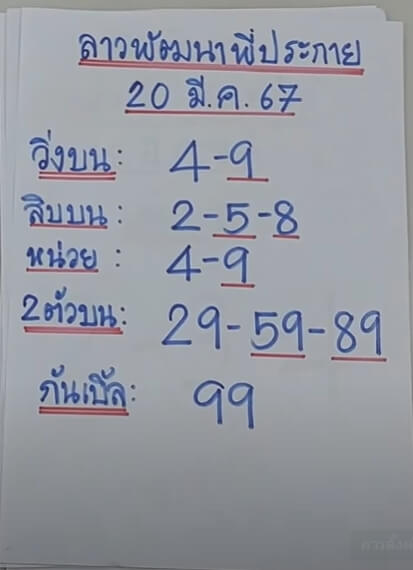 ลาวพัฒนาพี่ประกาย
20 มี.ค. 67
วิ่งบน: 4-9
สิบบน: 2-5-8
หน่วย : 4-9
2ตัวบน: 29-59-89
กันเบิ้ล: 99